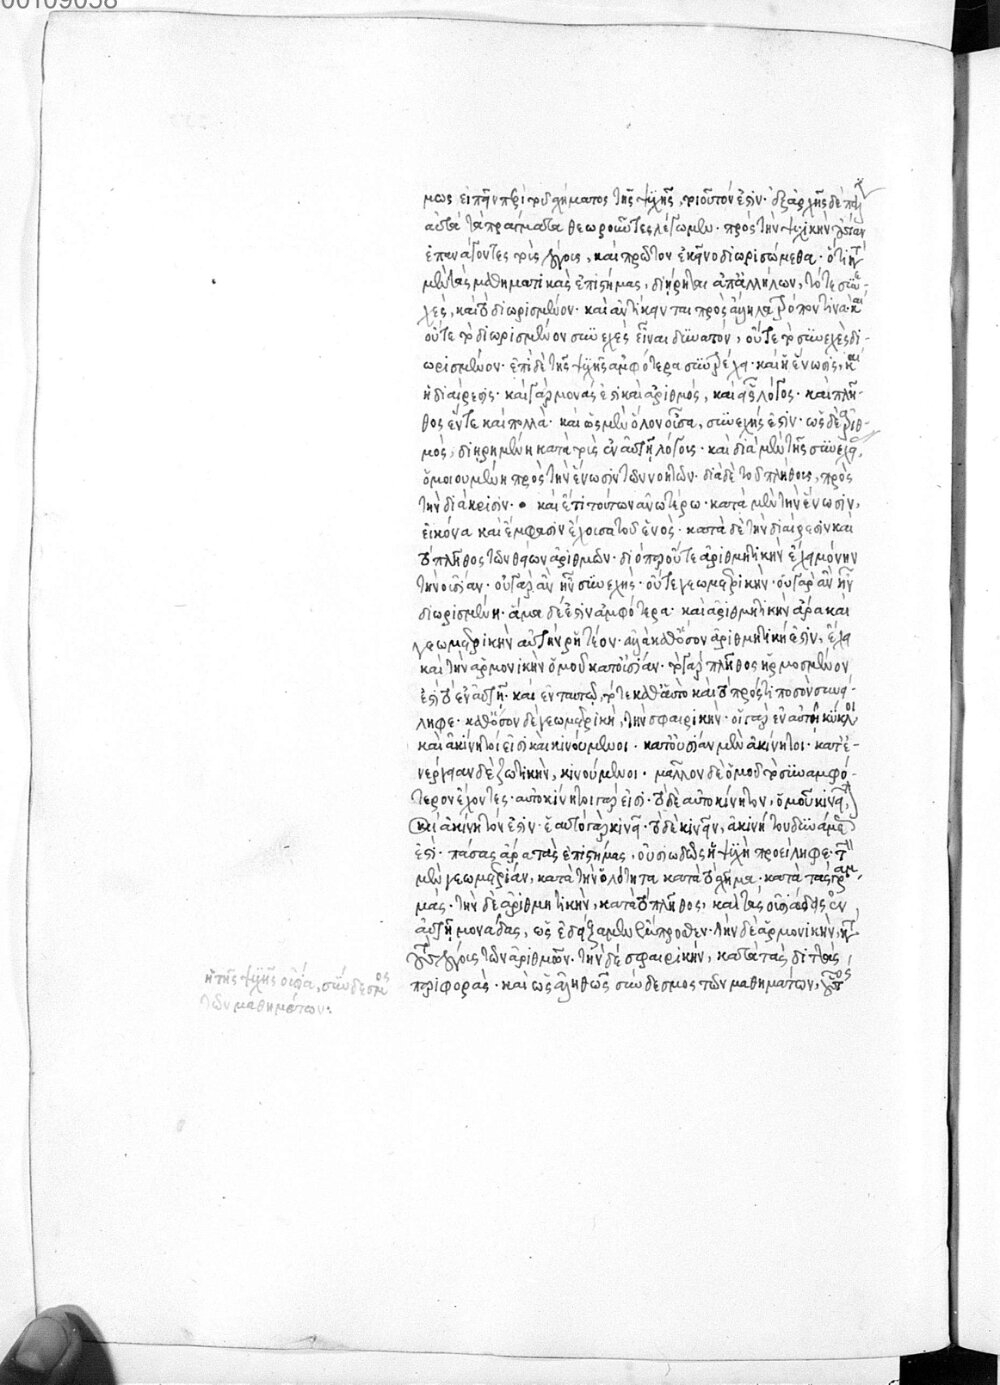 00109058
μως εἰπεῖν περὶ τοῦ σχήματος τῆς ψυχῆς, τοιοῦτόν ἐστιν· ἐξ ἀρχῆς δὲ πάλιν
αὐτὰ τὰ πράγματα θεωροῦντες λέγωμεν· πρὸς τὴν ψυχικὴν οὐσίαν
ἐπανάγοντες τοὺς λόγους, καὶ πρῶτον ἐκεῖνο διορισώμεθα· ὅτι ἐπὶ
μὲν τὰς μαθηματικὰς ἐπιστήμας, διῄρηται ἀπ' ἀλλήλων, τό τε συνε
χὲς, καὶ τὸ διωρισμένον· καὶ ἀντίκειται πρὸς ἄλληλα τρόπον τινὰ· καὶ
οὔτε τὸ διωρισμένον συνεχὲς εἶναι δυνατόν, οὔτε τὸ συνεχὲς δι-
ωρισμένον· ἐπὶ δὲ τῆς ψυχῆς ἀμφότερα συντρέχει· καὶ ἡ ἕνωσις, καὶ
ἡ διαίρεσις· καὶ γὰρ μονάς ἐστι καὶ ἀριθμός, καὶ εἷς λόγος· καὶ πλῆ
θος ἕν τε καὶ πολλὰ· καὶ ὡς μὲν ὅλον οὖσα, συνεχής ἐστιν· ὡς δὲ ἀριθ-
μός, διῃρημένη κατὰ τοὺς ἐν αὐτῇ λόγους· καὶ διὰ μὲν τῆς συνεχείας,
ὁμοιουμένη πρὸς τὴν ἕνωσιν τῶν νοητῶν· διὰ δὲ τοῦ πλήθους, πρὸς
τὴν διάκρισιν· καὶ ἔτι τούτων ἀνωτέρω· κατὰ μὲν τὴν ἕνωσιν,
εἰκόνα καὶ ἔμφασιν ἔχουσα τοῦ ἑνός· κατὰ δὲ τὴν διαίρεσιν καὶ
τὸ πλῆθος τῶν θείων ἀριθμῶν· διόπερ οὔτε ἀριθμητικὴν ἔχει μόνην
τὴν οὐσίαν· οὐ γὰρ ἂν ἦν συνεχής· οὔτε γεωμετρικὴν· οὐ γὰρ ἂν ἦν
διωρισμένη· ἅμα δέ ἐστιν ἀμφότερα· καὶ ἀριθμητικὴν ἄρα καὶ
γεωμετρικὴν αὐτὴν ῥητέον· ἀλλὰ καθόσον ἀριθμητική ἐστιν, ἔχει
καὶ τὴν ἁρμονικὴν ὁμοῦ κατ' οὐσίαν· τὸ γὰρ πλῆθος ἡρμοσμένον
ἐστὶ τὸ ἐν αὐτῇ· καὶ ἐν ταυτῷ, τό τε καθ' αὑτὸ καὶ τὸ πρός τι ποσὸν συνεί-
ληφε· καθόσον δὲ γεωμετρική, τὴν σφαιρικήν· οἱ γὰρ ἐν αὐτῇ κύκλοι
καὶ ἀκίνητοί εἰσι καὶ κινούμενοι· κατ' οὐσίαν μὲν ἀκίνητοι· κατ' ἐ-
νέργειαν δὲ ζωτικὴν, κινούμενοι· μᾶλλον δὲ ὁμοῦ τὸ συναμφό-
τερον ἔχοντες· αὐτοκίνητοι γάρ εἰσι· τὸ δὲ αὐτοκίνητον, ὁμοῦ κινεῖται
καὶ ἀκίνητόν ἐστιν· ἑαυτὸ γὰρ κινεῖ· τὸ δὲ κινεῖν, ἀκινήτου δυνάμεώς
ἐστι· πάσας ἄρα τὰς ἐπιστήμας, οὐσιωδῶς ἡ ψυχὴ προείληφε· τὴν
μὲν γεωμετρίαν, κατὰ τὴν ὁλότητα κατὰ τὸ σχῆμα· κατὰ τὰς γραμ-
μάς· τὴν δὲ ἀριθμητικήν, κατὰ τὸ πλῆθος, καὶ τὰς οὐσιώδεις ἐν
αὐτῇ μονάδας, ὡς ἐδείξαμεν ἔμπροσθεν· τὴν δὲ ἁρμονικήν, κατὰ
τοὺς λόγους τῶν ἀριθμῶν· τὴν δὲ σφαιρικήν, κατὰ τὰς διττὰς
περιφοράς· καὶ ὡς ἀληθῶς σύνδεσμος τῶν μαθημάτων, οὗτος
ἡ τῆς ψυχῆς οὐσία, σύνδεσμος
τῶν μαθημάτων: